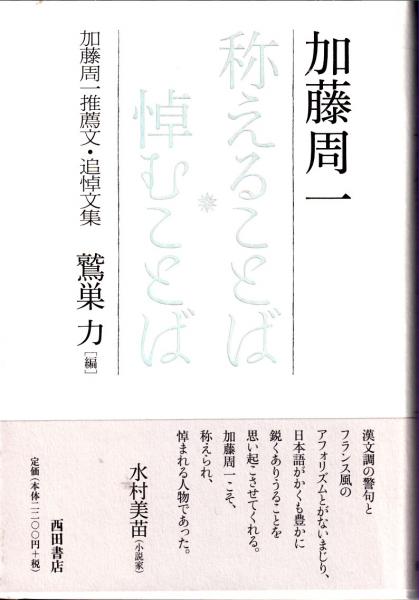 加藤周一
称えることば
悼むことば
加藤周一推薦文・追悼文集
鷲巣 力[編]
漢文調の警句と
フランス風の
アフォリズムとがないまじり、
日本語がかくも豊かに
鋭くありうることを
思い起こさせてくれる。
加藤周一こそ、
称えられ、
悼まれる人物であった。
水村美苗(小説家)
定価(本体二二〇〇円+税)
西田書店